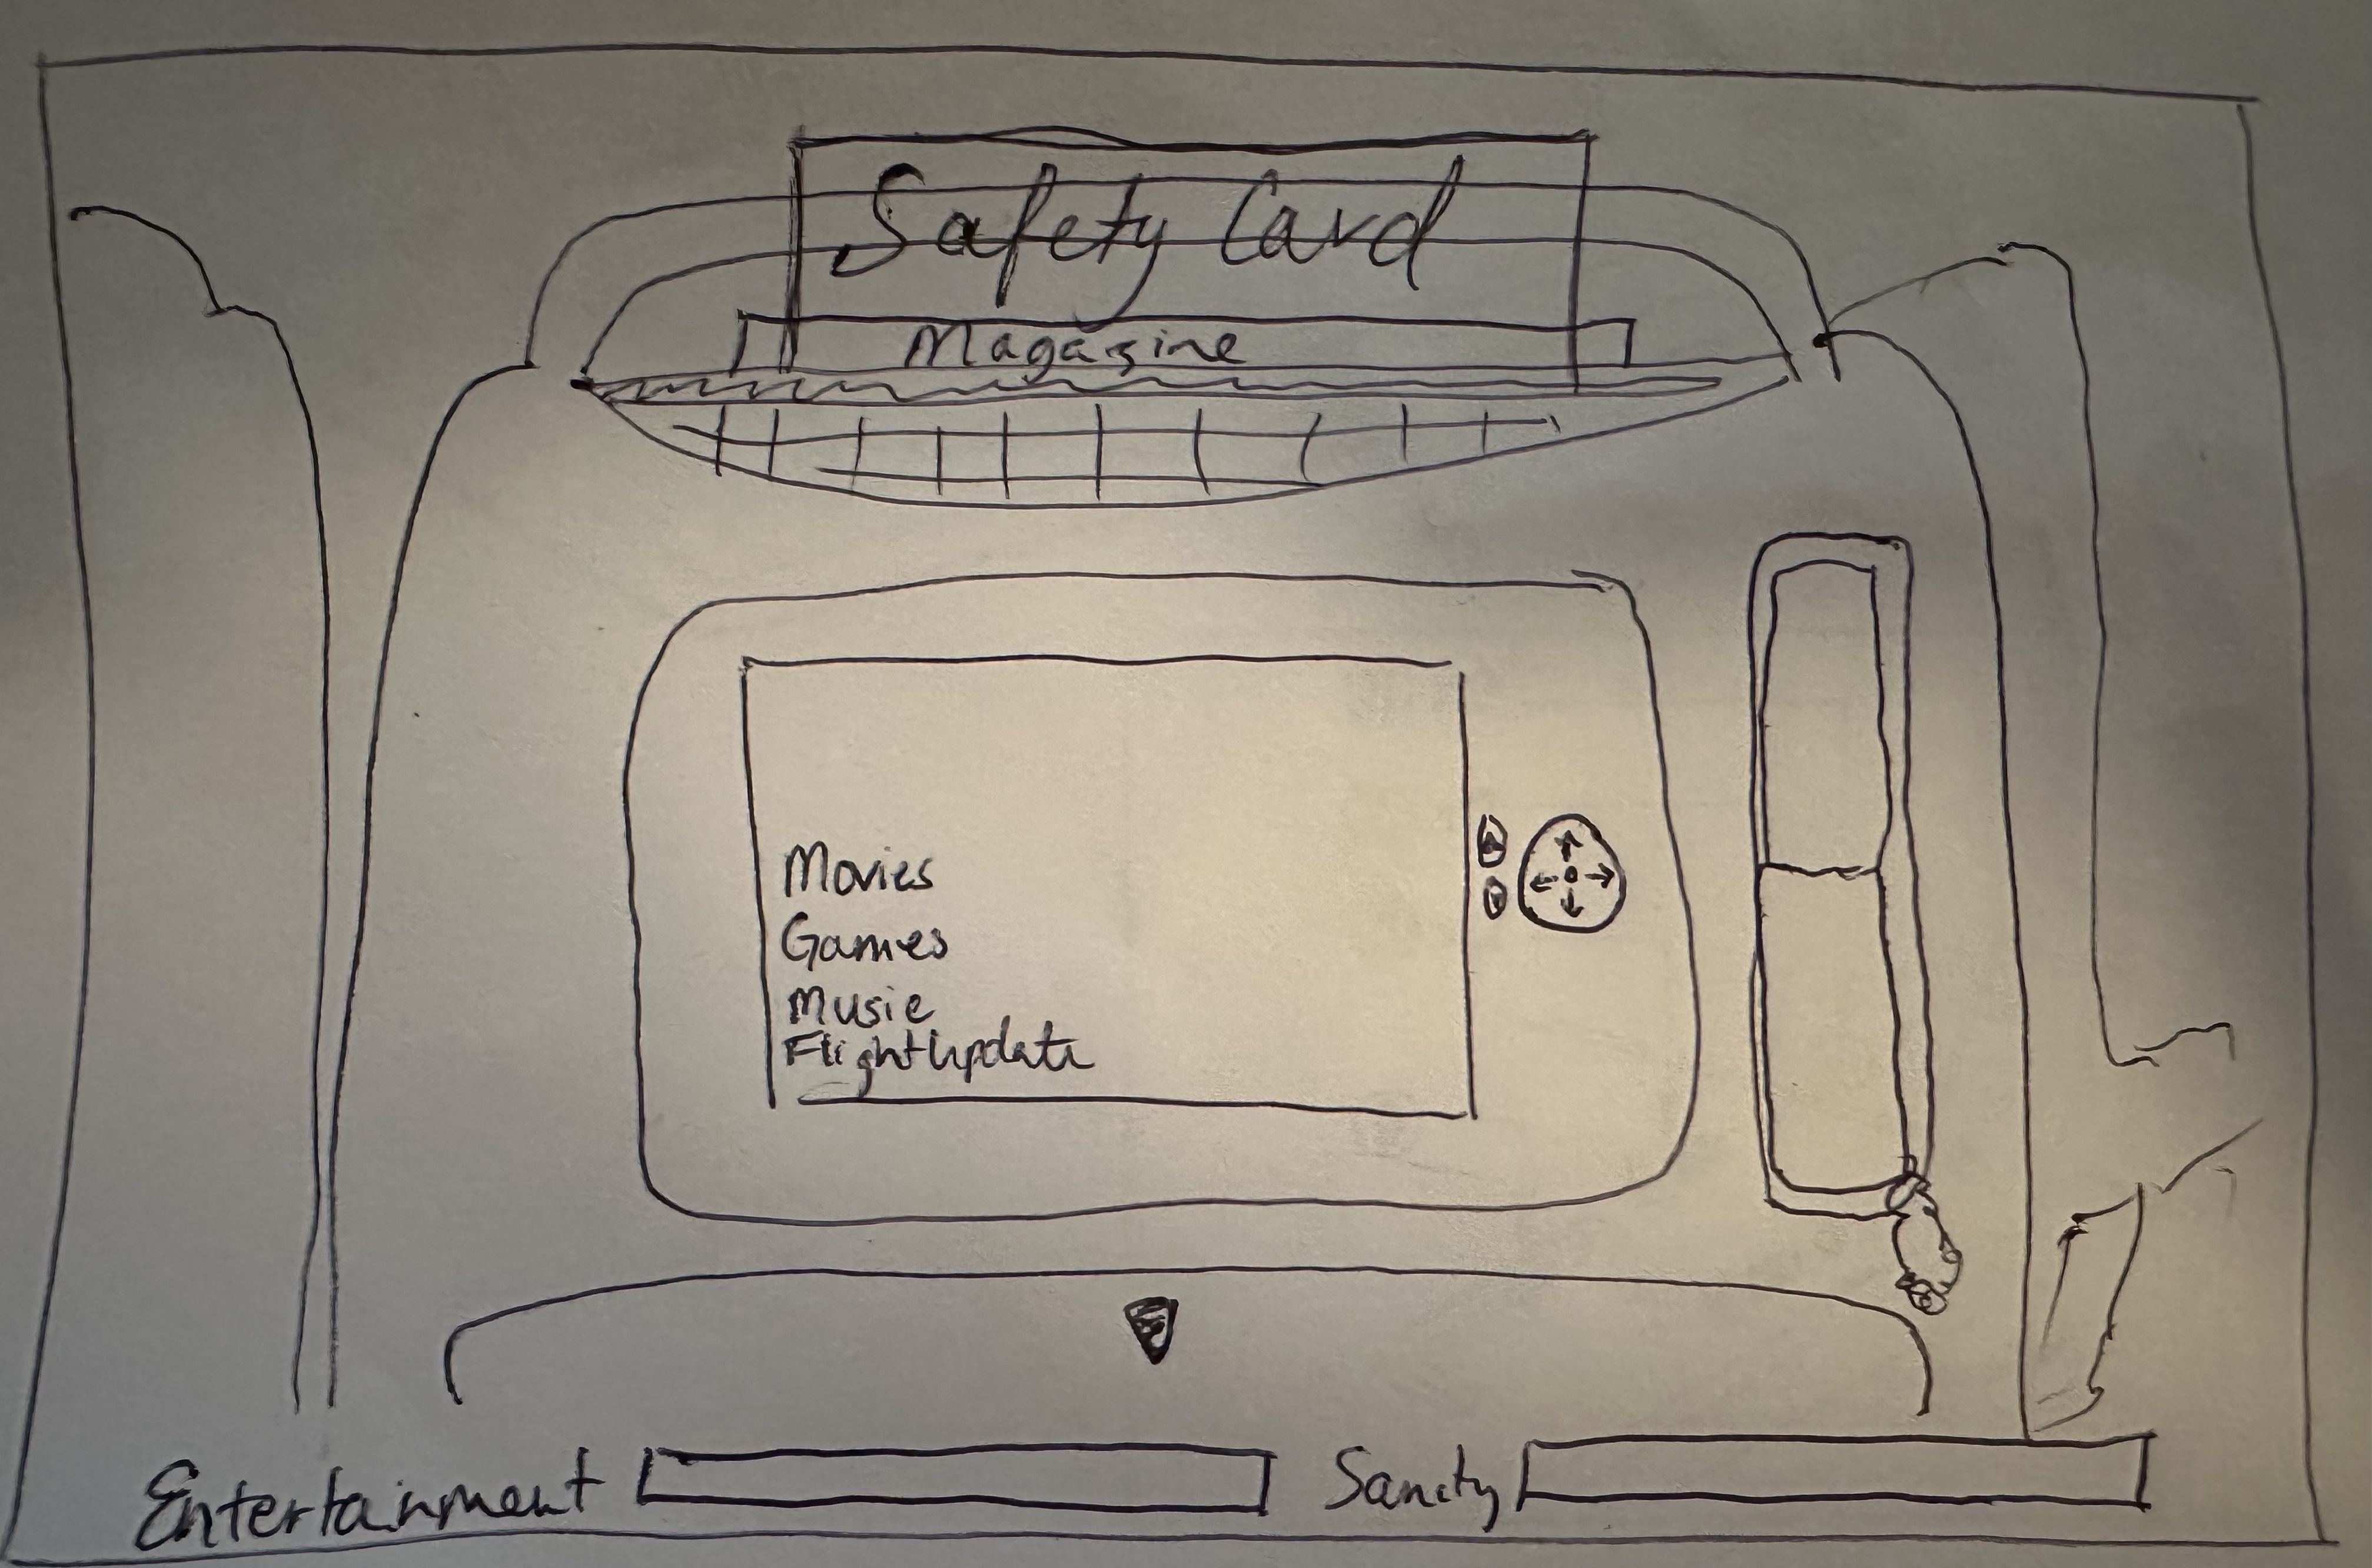 Safety Card
Magazine
Movies
Games
Music
Flight Update
Entertainment
Sanity